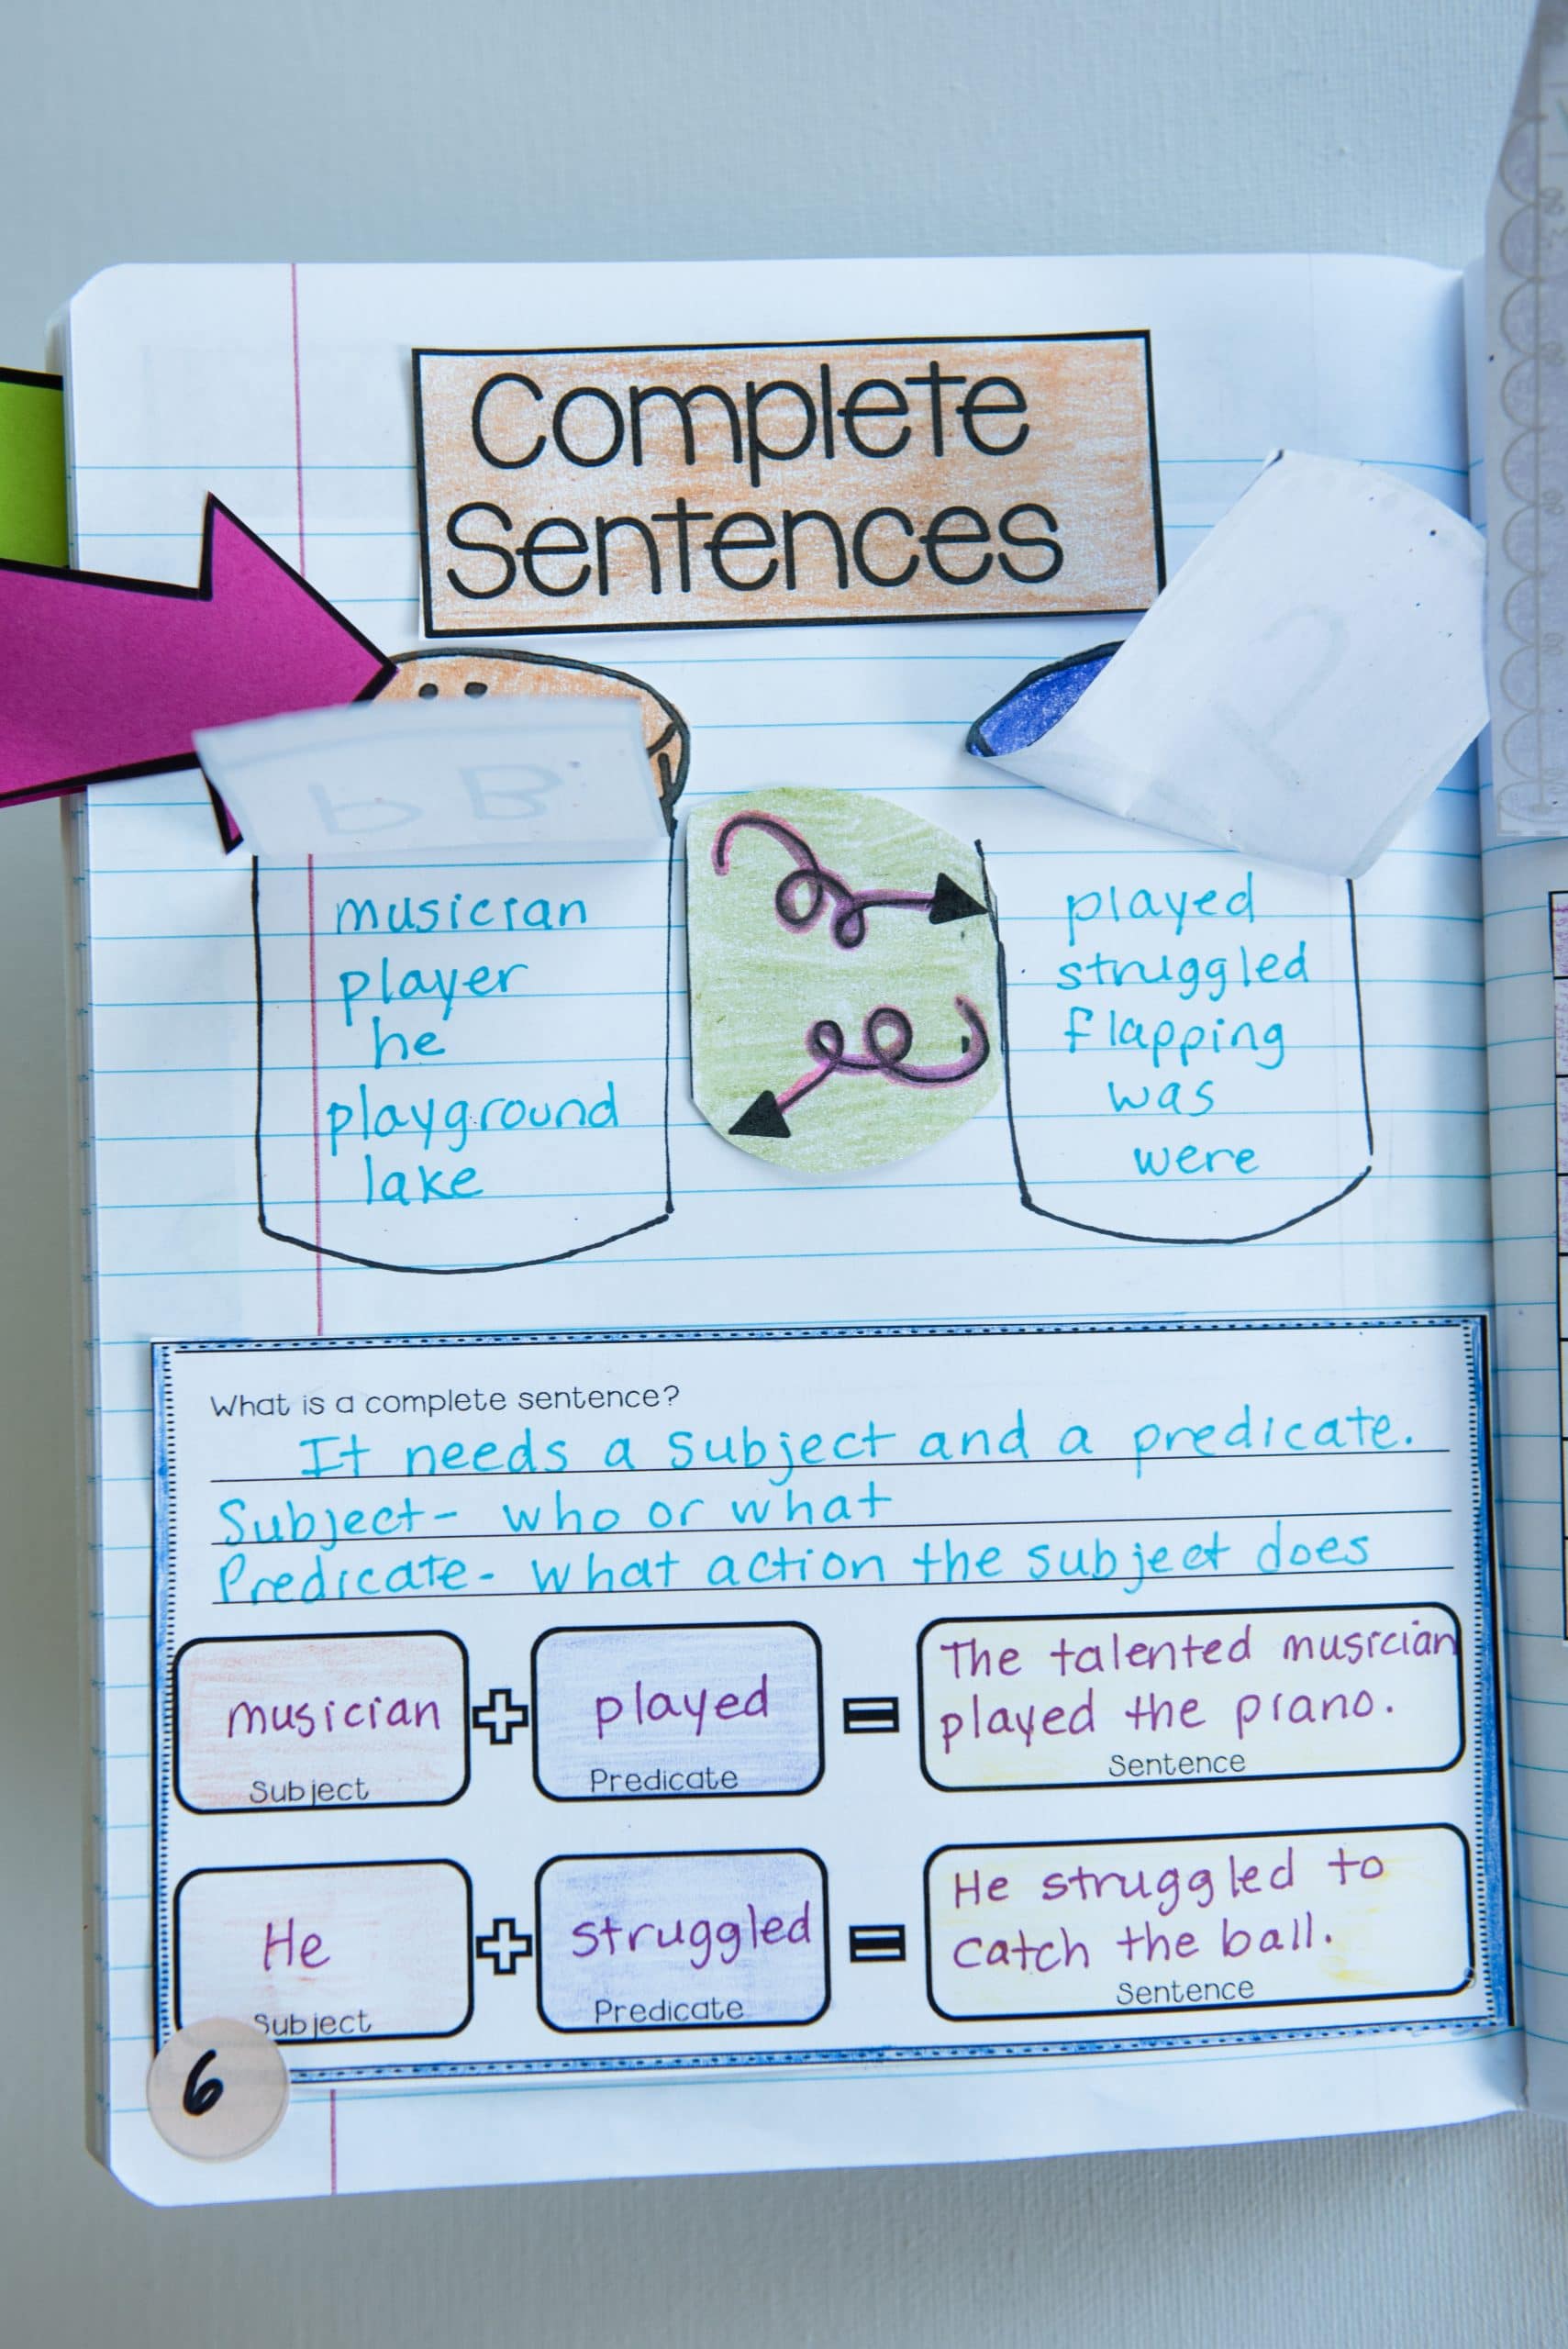 Complete
Sentences
PB
J
musician
player
he
playground
lake
played
struggled
flapping
was
were
What is a complete sentence?
It needs a subject and a predicate.
Subject- who or what
Predicate- what action the subject does
musician
Subject
+
played
Predicate
=
The talented musician
played the piano.
Sentence
He
Subject
+
struggled
Predicate
=
He struggled to
catch the ball.
Sentence
6